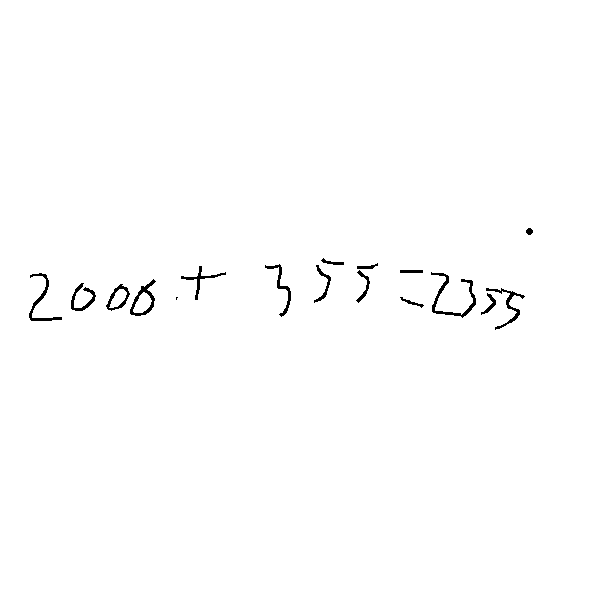 2000 + 355 = 2355